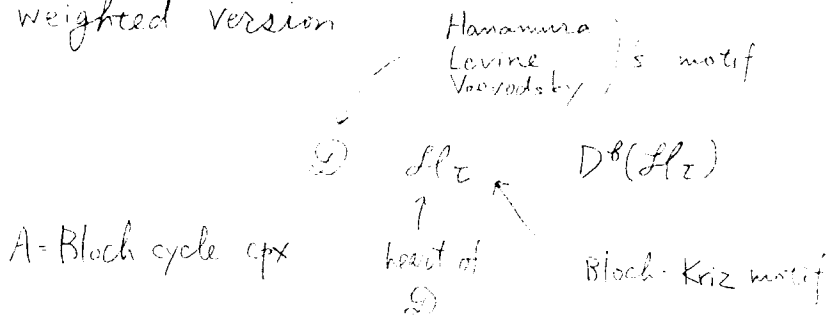 weighted version
Hanamura
Levine
Voevodsky
's motif
𝒟 ℋ_τ D^b(ℋ_τ)
A = Bloch cycle cpx
heart of
𝒟
Bloch-Kriz motif